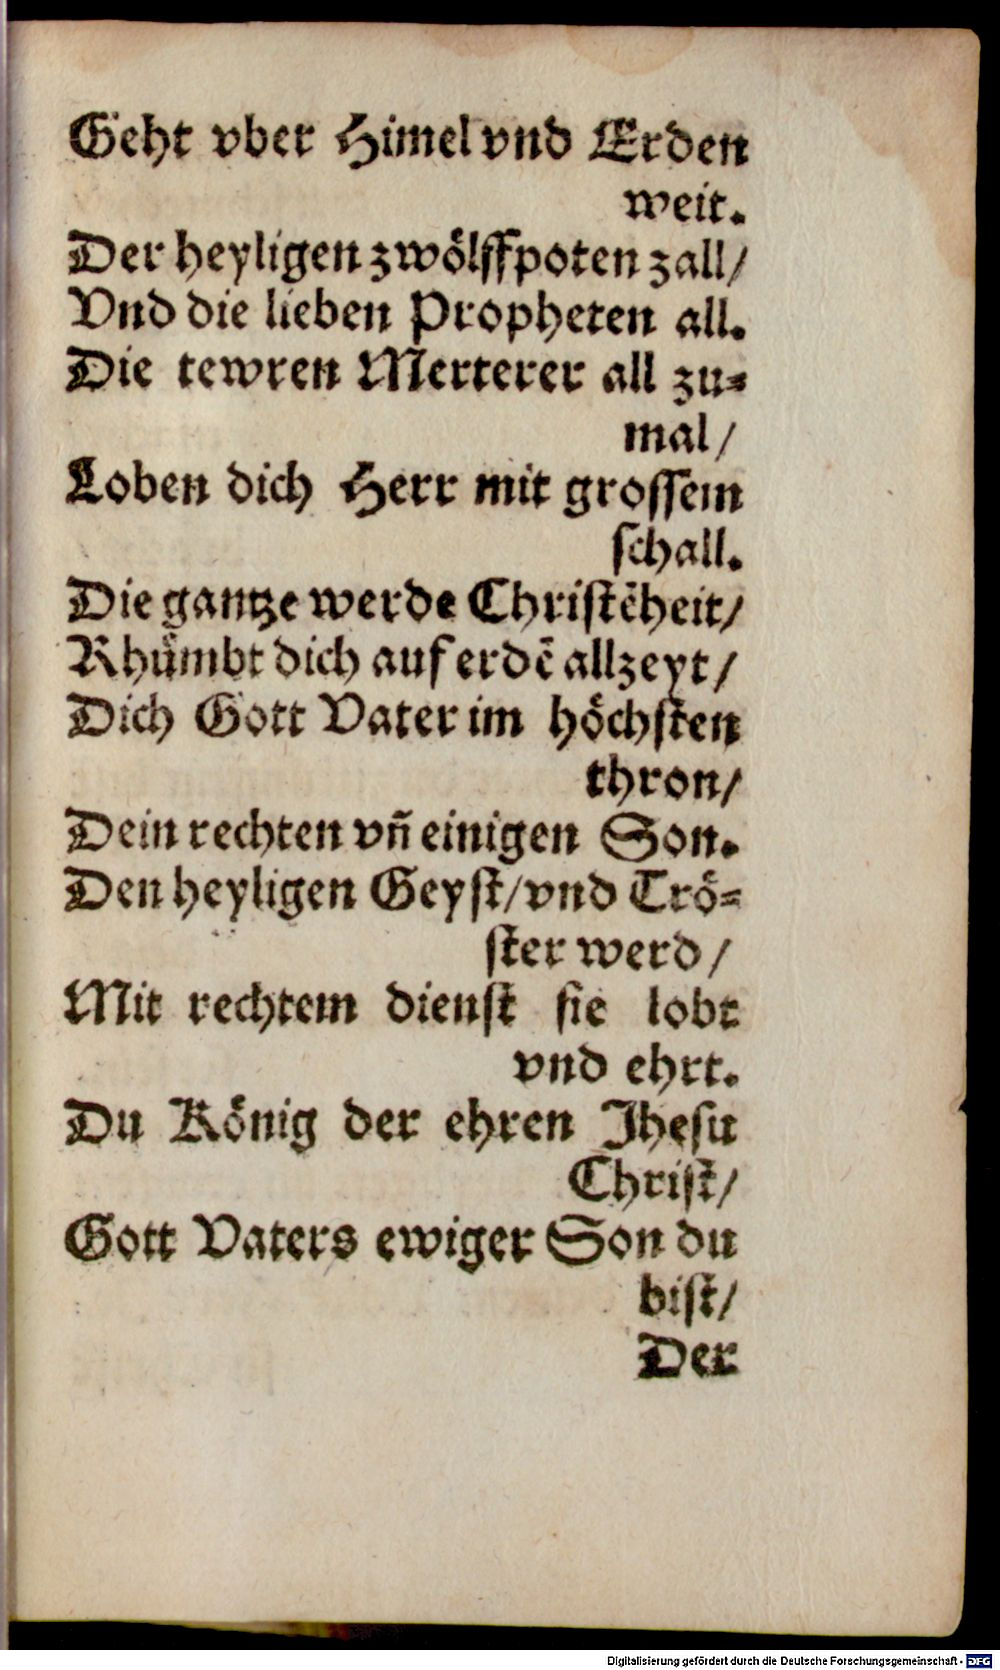 Geht vber Himel vnd Erden
weit.
Der heyligen zwölffpoten zall/
Vnd die lieben Propheten all.
Die tewren Merterer all zu⸗
mal/
Loben dich Herr mit grossem
schall.
Die gantze werde Christēheit/
Rhümbt dich auf erdē allzeyt/
Dich Gott Vater im höchsten
thron/
Dein rechten vñ einigen Son.
Den heyligen Geyst/vnd Trö⸗
ster werd/
Mit rechtem dienst sie lobt
vnd ehrt.
Du König der ehren Jhesu
Christ/
Gott Vaters ewiger Son du
bist/
Der
Digitalisierung gefördert durch die Deutsche Forschungsgemeinschaft - DFG